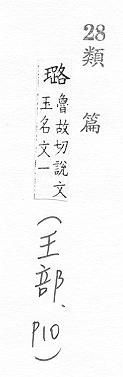 28
類篇
璐 魯故切說文
玉名文一
(王部、P10)